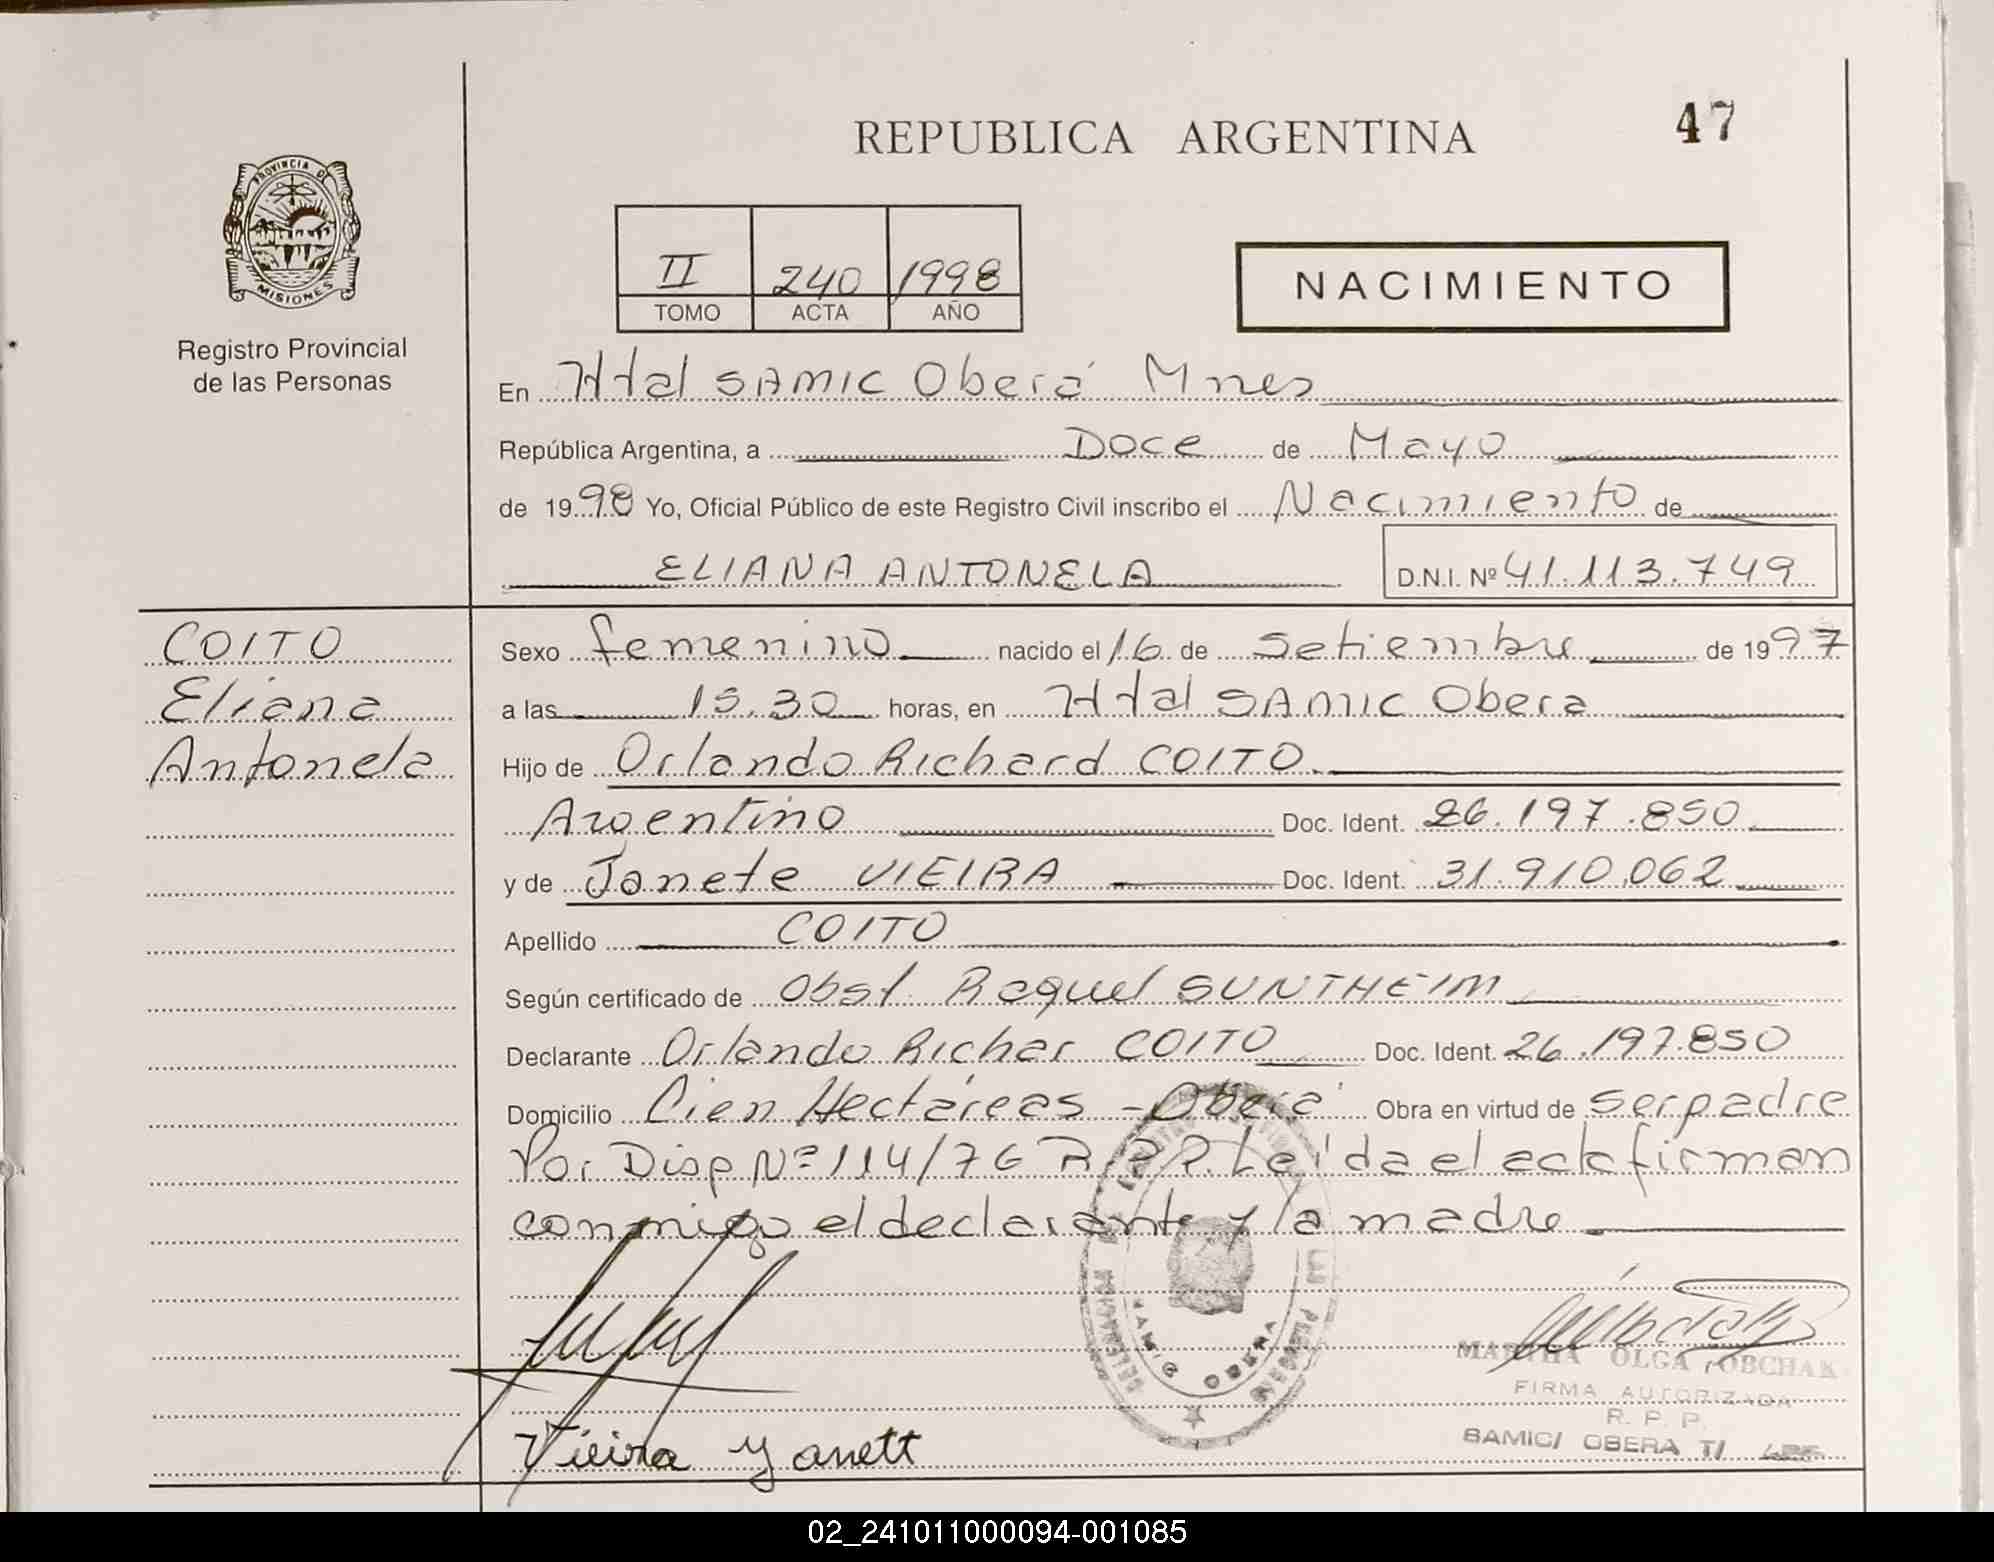 47
REPUBLICA ARGENTINA
PROVINCIA D
MISIONES
Registro Provincial
de las Personas
II 240 1998
TOMO ACTA AÑO
NACIMIENTO
En Htal SAMIC Oberá Mnes
República Argentina, a Doce de Mayo
de 1998 Yo, Oficial Público de este Registro Civil inscribo el Nacimiento de
ELIANA ANTONELA D.N.I. Nº 41.113.749
COITO
Eliana
Antonela
Sexo femenino nacido el 16 de Setiembre de 1997
a las 15.30 horas, en Htal SAMIC Obera
Hijo de Orlando Richard COITO
Argentino Doc. Ident. 26.197.850
y de Janete VIEIRA Doc. Ident. 31.910.062
Apellido COITO
Según certificado de Obst Raquel SUNTHEIM
Declarante Orlando Richar COITO Doc. Ident. 26.197.850
Domicilio Cien Hectáreas - Oberá Obra en virtud de ser padre
Por Disp. Nº 114/76 R.P.P. Leída el acta firman
conmigo el declarante y la madre
SAMIC OBERA
MARTHA OLGA
FIRMA AUTORIZADA
R. P. P.
SAMIC/ OBERA
Vieira Yanett
02_241011000094-001085